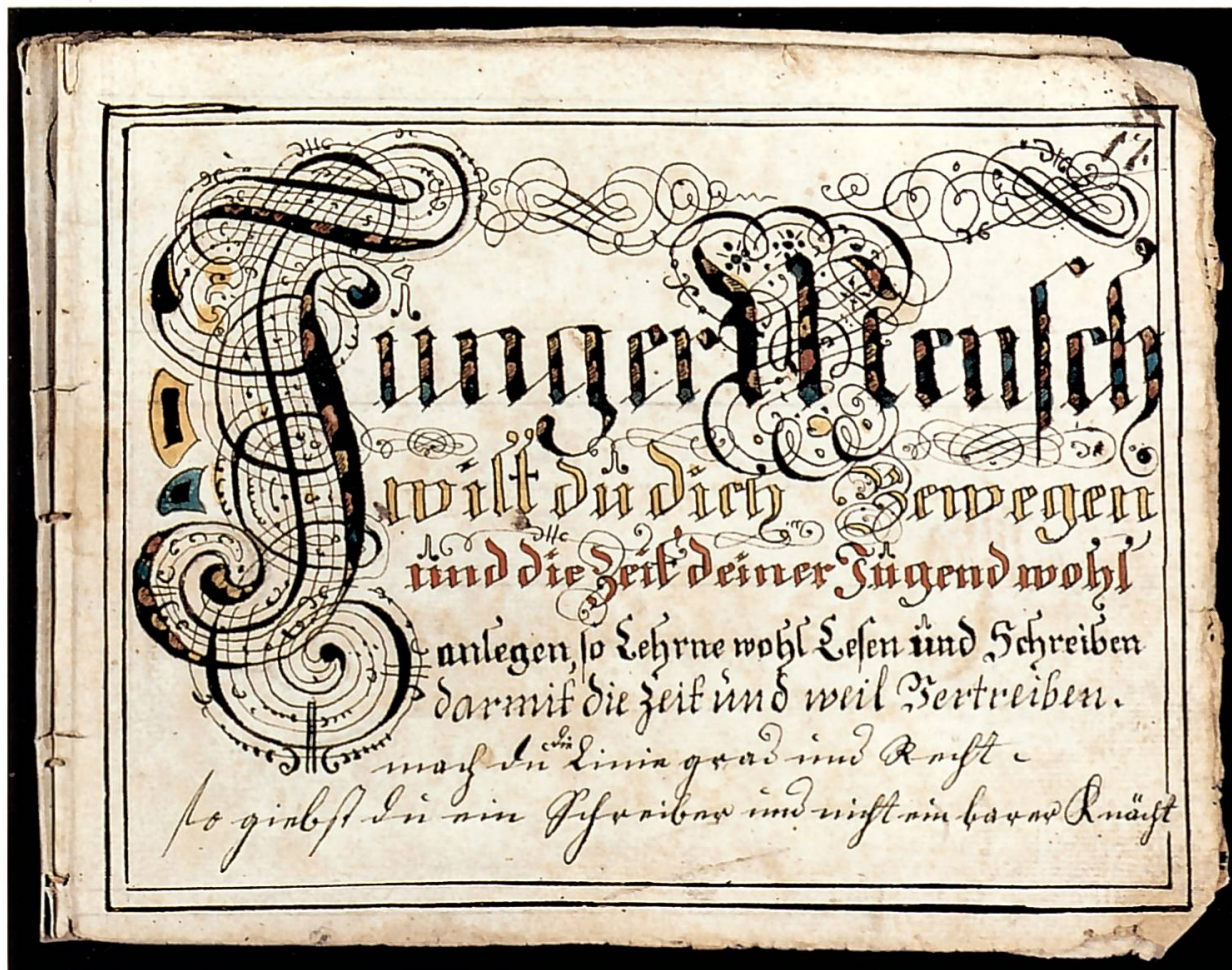 Jünger Mensch
wilt dü dich Bewegen
ünd die Zeit deiner Jügend wohl
anlegen, so Lehrne wohl Lesen ünd Schreiben
darmit die Zeit ünd weil Vertreiben.
mach du die Linie grad und Recht
so giebst du ein Schreiber und nicht ein barer Knächt